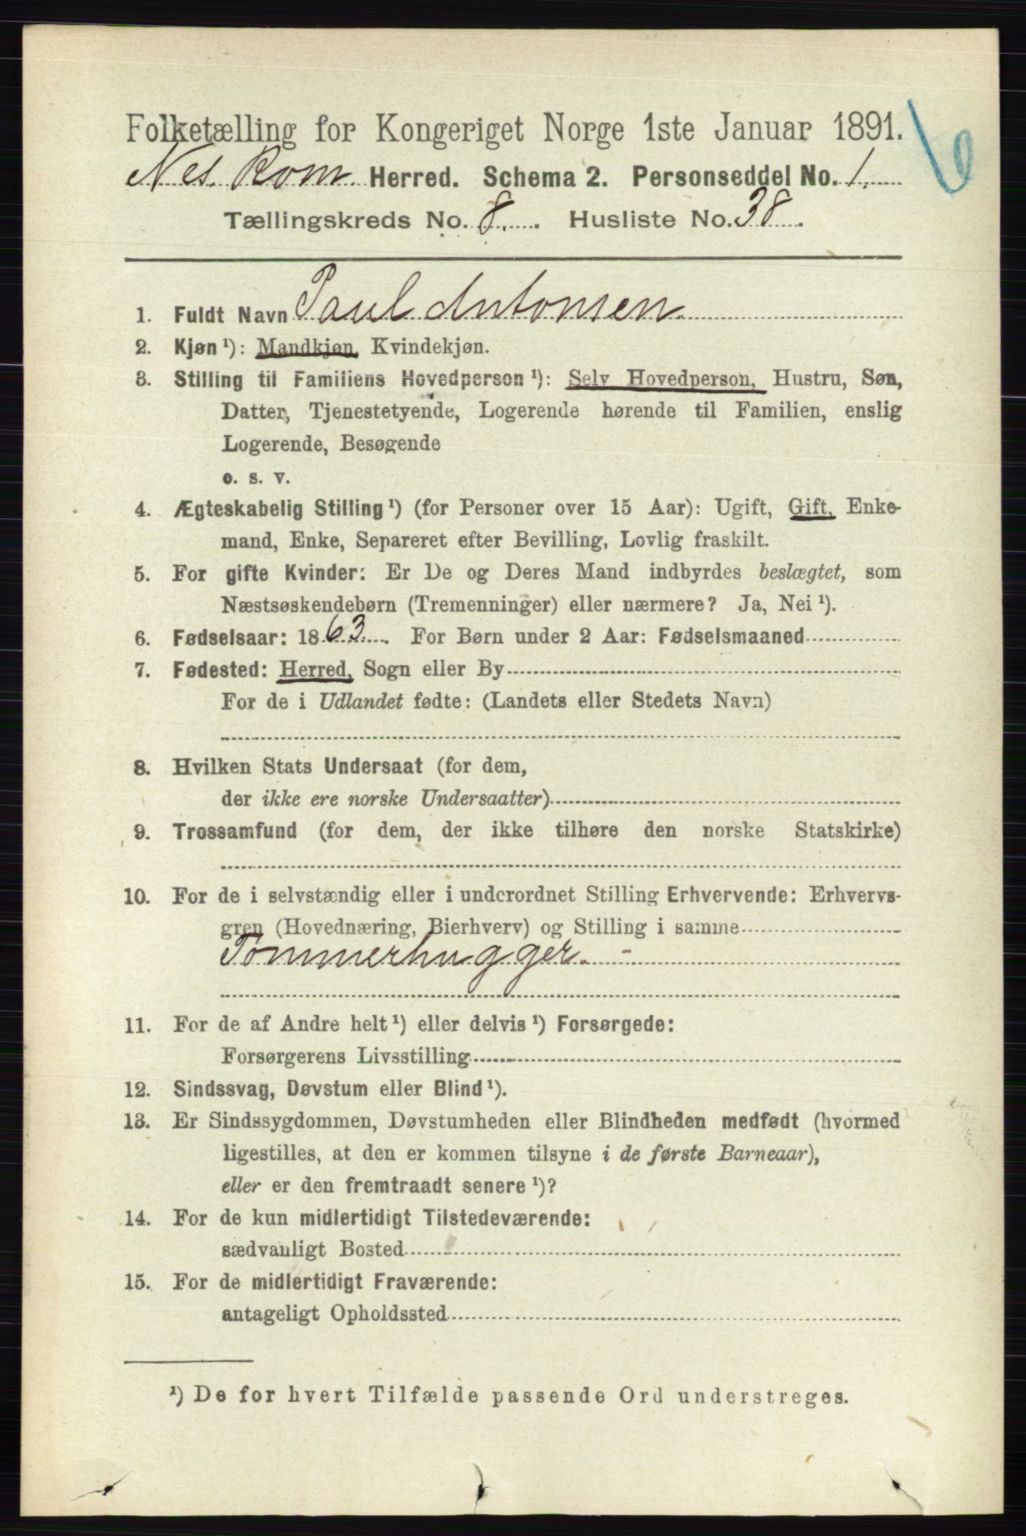 Folketælling for Kongeriget Norge 1ste Januar 1891.
6
Nes Rom Herred. Schema 2. Personseddel No. 1.
Tællingskreds No. 8. Husliste No. 38.
1. Fuldt Navn Paul Antonsen
2. Kjøn ¹): Mandkjøn, Kvindekjøn.
3. Stilling til Familiens Hovedperson ¹): Selv Hovedperson, Hustru, Søn,
Datter, Tjenestetyende, Logerende hørende til Familien, enslig
Logerende, Besøgende
o. s. v.
4. Ægteskabelig Stilling ¹) (for Personer over 15 Aar): Ugift, Gift, Enke-
mand, Enke, Separeret efter Bevilling, Lovlig fraskilt.
5. For gifte Kvinder: Er De og Deres Mand indbyrdes beslægtet, som
Næstsøskendebørn (Tremenninger) eller nærmere? Ja, Nei ¹).
6. Fødselsaar: 1863. For Børn under 2 Aar: Fødselsmaaned
7. Fødested: Herred, Sogn eller By
For de i Udlandet fødte: (Landets eller Stedets Navn)
8. Hvilken Stats Undersaat (for dem,
der ikke ere norske Undersaatter)
9. Trossamfund (for dem, der ikke tilhøre den norske Statskirke)
10. For de i selvstændig eller i underordnet Stilling Erhvervende: Erhvervs-
gren (Hovednæring, Bierhverv) og Stilling i samme
Tømmerhugger. -
11. For de af Andre helt ¹) eller delvis ¹) Forsørgede:
Forsørgerens Livsstilling
12. Sindssvag, Døvstum eller Blind ¹).
13. Er Sindssygdommen, Døvstumheden eller Blindheden medfødt (hvormed
ligestilles, at den er kommen tilsyne i de første Barneaar),
eller er den fremtraadt senere ¹)?
14. For de kun midlertidigt Tilstedeværende:
sædvanligt Bosted
15. For de midlertidigt Fraværende:
antageligt Opholdssted
¹) De for hvert Tilfælde passende Ord understreges.